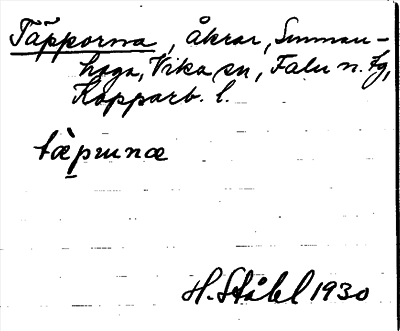 Täpporna, åkrar, Sunnan-
haga, Vika sn, Falu n. tg,
Kopparb. l.
tæ̀pɯnæ
H. Ståhl 1930